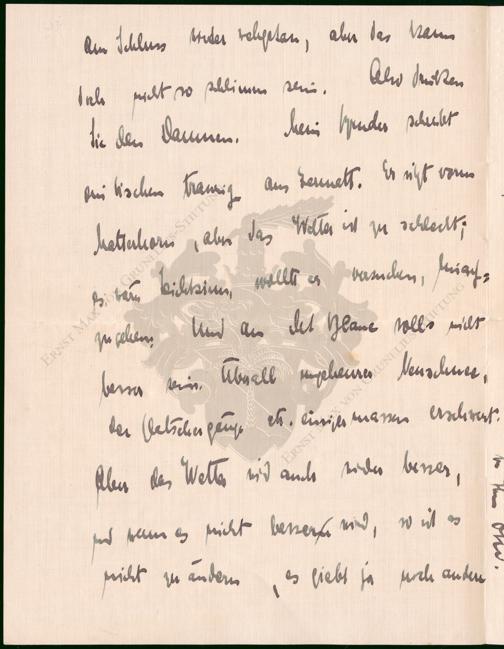 am Schluss wieder wehgetan, aber das kann
doch nicht so schlimm sein. Also drücken
Sie den Daumen. Mein Bruder schreibt
ein bischen traurig aus Zermatt. Er sitzt vorm
Matterhorn, aber das Wetter ist zu schlecht;
es wäre Leichtsinn, wollte er versuchen, hinauf=
zugehen. Und am Mt Blanc solls nicht
besser sein. Überall ungeheurer Neuschnee,
der Gletschergänge etc. einigermassen erschwert.
Aber das Wetter wird auch wieder besser,
und wenn es nicht besser wird, so ist es
nicht zu ändern, es giebt ja noch andere
ERNST MAX VON GRUNELIUS-STIFTUNG
ERNST MAX VON GRUNELIUS-STIFTUNG